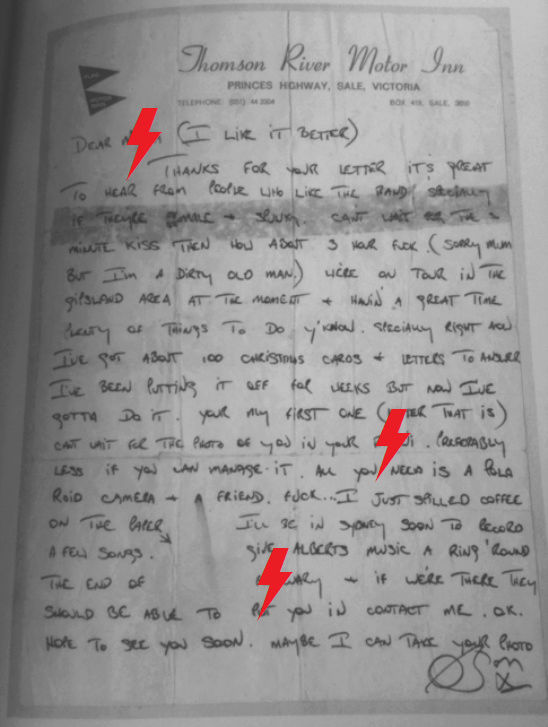 FLAG
MOTOR INNS
Thomson River Motor Inn
PRINCES HIGHWAY, SALE, VICTORIA
TELEPHONE (051) 44 2004 BOX 419, SALE, 3850
DEAR (I LIKE IT BETTER)
THANKS FOR YOUR LETTER IT'S GREAT
TO HEAR FROM PEOPLE WHO LIKE THE BAND SPECIALLY
IF THEYRE FEMALE + SPUNKY. CANT WAIT FOR THE 3
MINUTE KISS THEN HOW ABOUT 3 HOUR FUCK. (SORRY MUM
BUT I'M A DIRTY OLD MAN.) WE'RE ON TOUR IN THE
GIPSLAND AREA AT THE MOMENT + HAVIN' A GREAT TIME
PLENTY OF THINGS TO DO Y'KNOW. SPECIALLY RIGHT NOW
I'VE GOT ABOUT 100 CHRISTMAS CARDS + LETTERS TO ANSWER
I'VE BEEN PUTTING IT OFF FOR WEEKS BUT NOW I'VE
GOTTA DO IT. YOUR MY FIRST ONE (LETTER THAT IS)
CANT WAIT FOR THE PHOTO OF YOU IN YOUR . PREFERABLY
LESS IF YOU CAN MANAGE IT. ALL YOU NEED IS A POLA
ROID CAMERA + A FRIEND. FUCK...I JUST SPILLED COFFEE
ON THE PAPER I'LL BE IN SYDNEY SOON TO RECORD
A FEW SONGS. GIVE ALBERTS MUSIC A RING 'ROUND
THE END OF + IF WE'RE THERE THEY
SHOULD BE ABLE TO PUT YOU IN CONTACT ME. OK.
HOPE TO SEE YOU SOON. MAYBE I CAN TAKE YOUR PHOTO